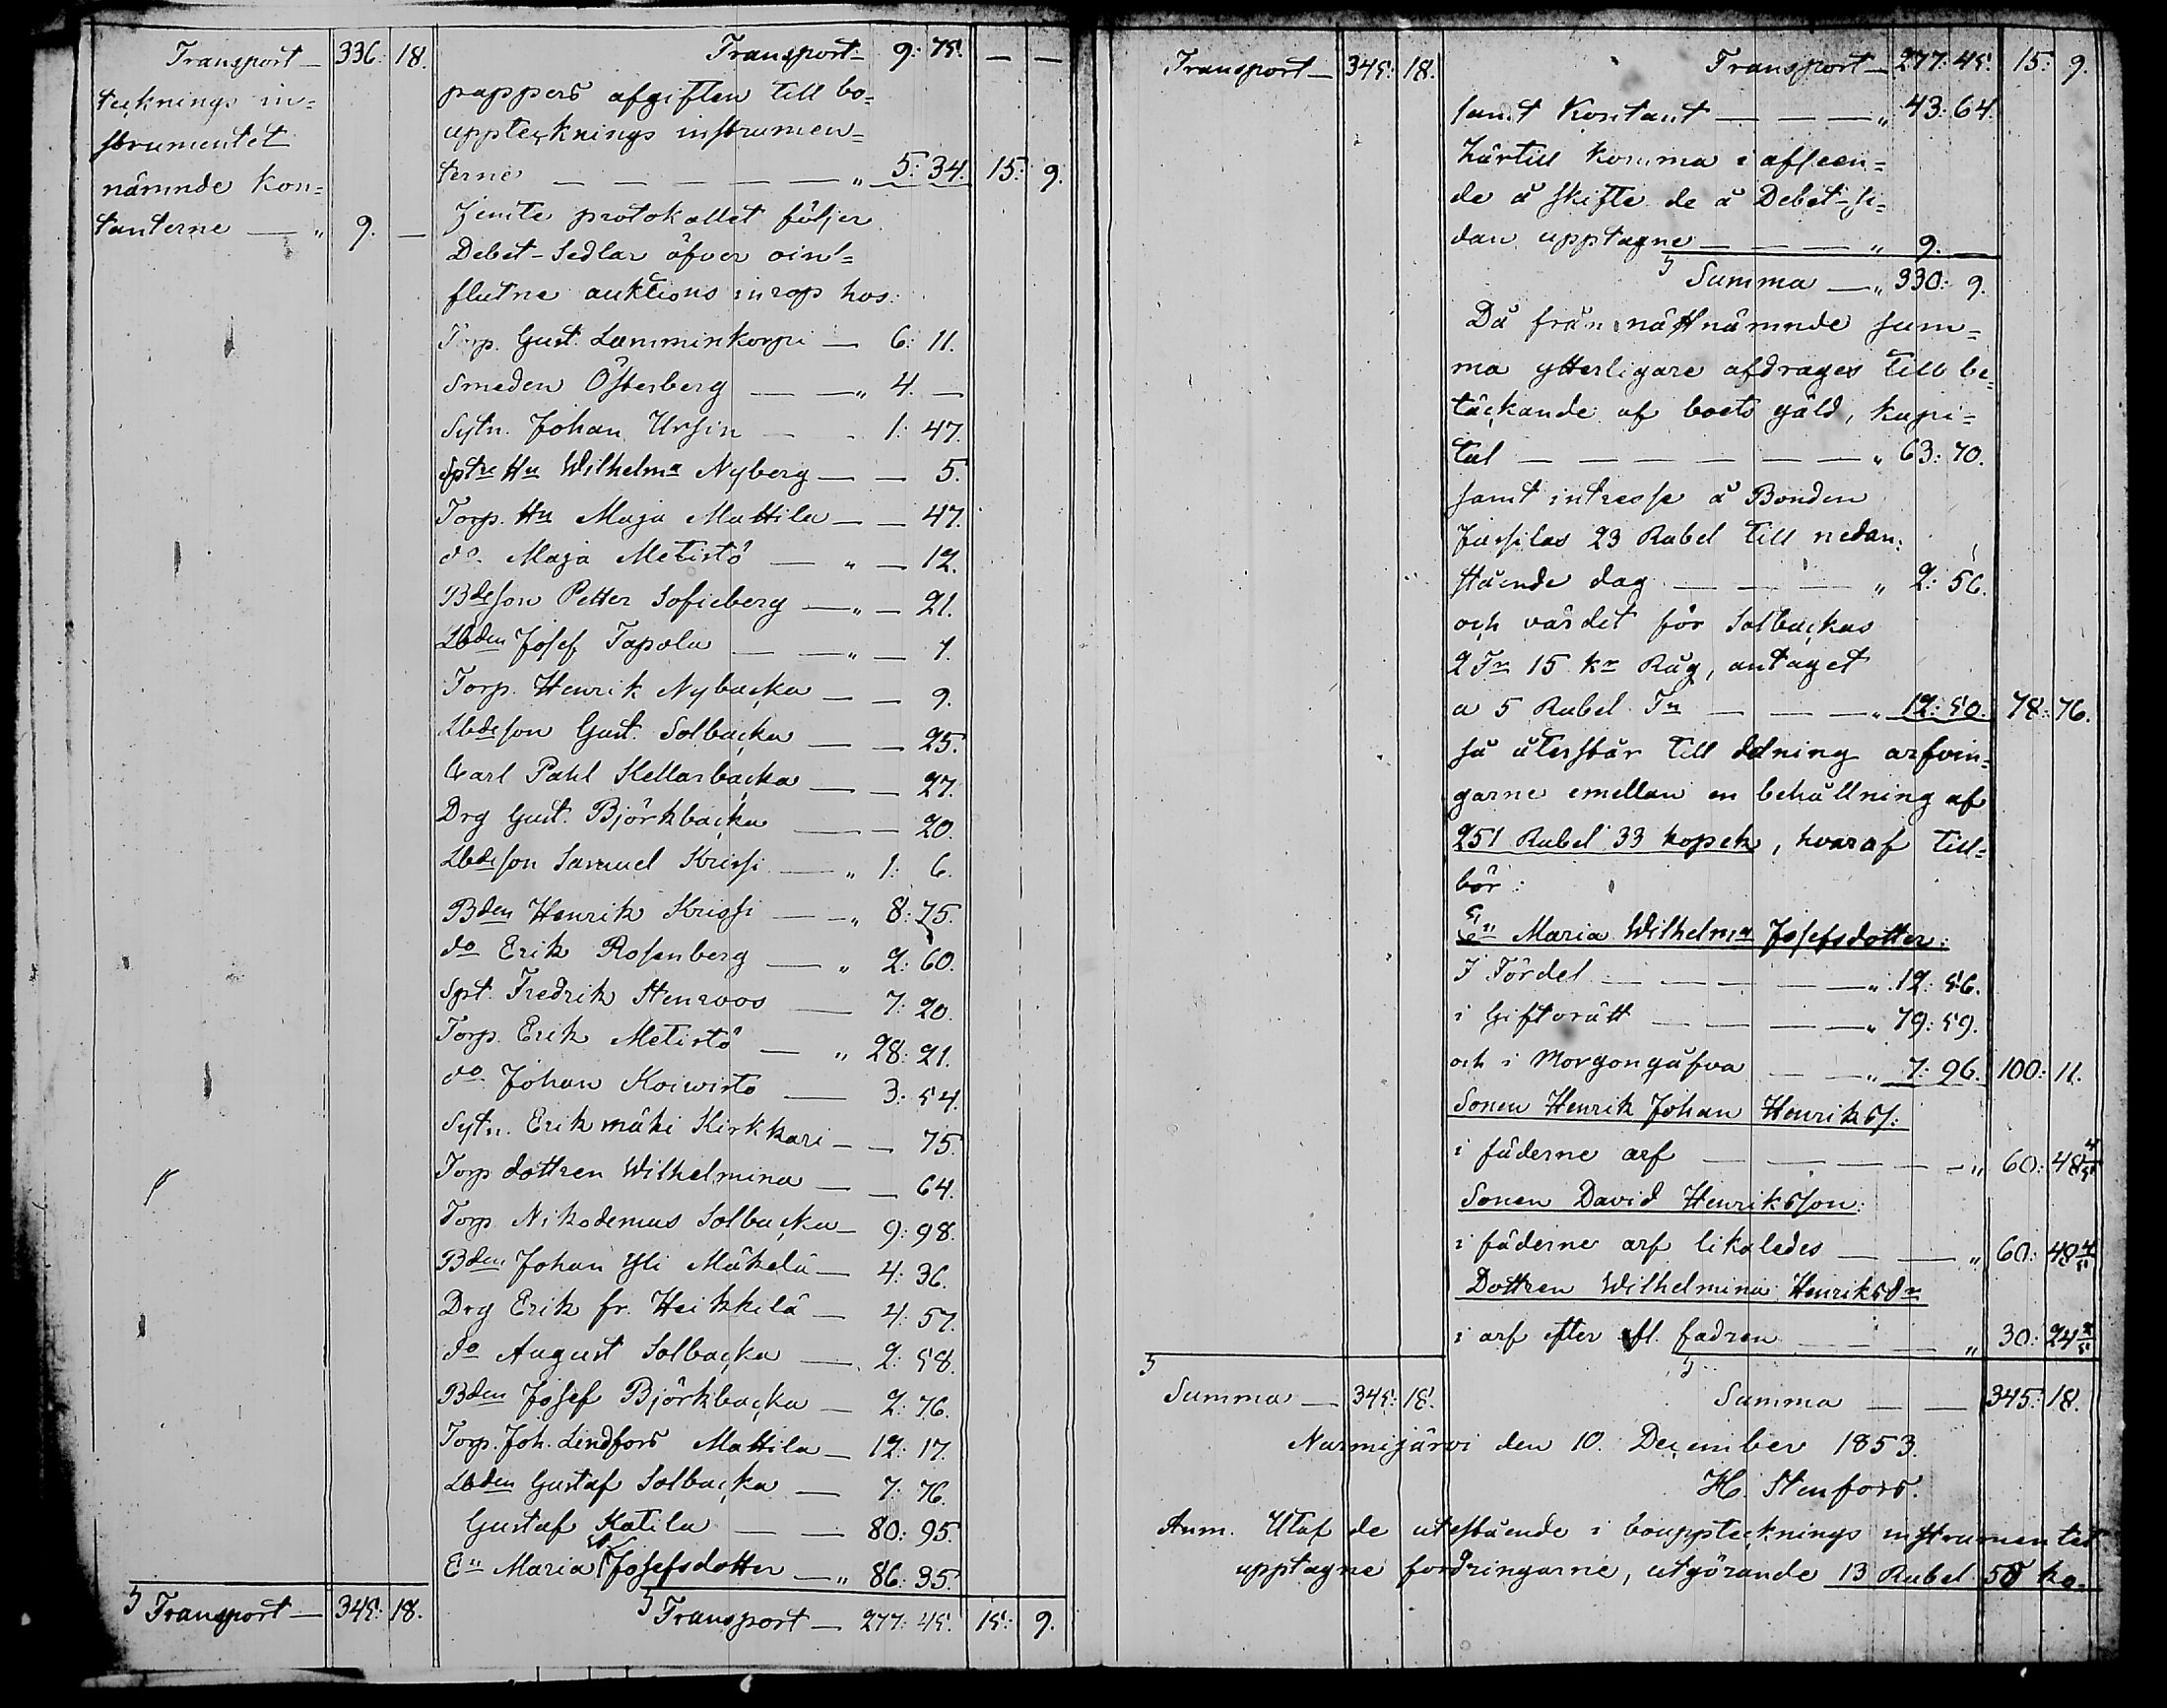 Transport — 336: 18.
tecknings in=
strumentet
nämnde kon=
tanterne — " 9. —
Transport — 345: 18.
Transport — 9: 75. — —
pappers afgiften till bo=
upptecknings instrumen=
terne — — — — — — " 5: 34. 15: 9.
Jemte protokollet följer
Debet-Sedlar öfver oin=
flutne auktions inrop hos:
Torp. Gust. Lamminkorpi — 6: 11.
Smeden Österberg — — " 4. —
Sytn. Johan Ursin — — 1: 47.
Sptre Hu Wilhelma Nyberg — — 5.
Torp. Hu Maja Mattila — — 47.
do. Maja Metistö — " — 12.
Bdeson Petter Sofieberg — " — 21.
Lbden Josef Tapola — — " — 1.
Torp. Henrik Nybacka — — 9.
Lbdeson Gust. Solbacka — — 25.
Carl Pahl Kellarbacka — — 27.
Drg Gust. Björkbacka — — 20.
Lbdeson Samuel Krissi — " 1: 6.
Bden Henrik Krissi — — " 8: 25.
do Erik Rosenberg — " 2: 60.
Spt. Fredrik Stenroos — 7: 20.
Torp. Erik Metistö — " 28: 21.
do Johan Koiwisto — 3: 54.
Sytn. Erik mäki Kirkkari — — 75.
Torp dottren Wilhelmina — — 64.
Torp. Nikodemus Solbacka — 9: 98.
Bden Johan Yli Mäkelä — 4: 36.
Drg Erik fr. Heikkilä — 4: 57.
do August Solbacka — 2: 58.
Bden Josef Björkbacka — 2: 76.
Torp. Joh. Lindfors Mattila — 12: 17.
Lbden Gustaf Solbacka — 7: 76.
Gustaf Katila — — 80: 95.
En Maria Josefsdotter — " 86: 35.
Transport — 277: 45. 15: 9.
Transport — 345: 18.
Summa — 345: 18.
Transport — 277: 45. 15: 9.
samt Kontant — — — " 43: 64.
härtill komma i afseen=
de å skifte de å Debet-si=
dan upptagne — — — " 9. —
Summa — " 330: 9.
Då från nästnämnde sum=
ma ytterligare afdrages till be=
täckande af boets gäld, kapi=
tal — — — — — — " 63: 70.
samt intresse å Bonden
Jussilas 23 Rubel till nedan:
stående dag — — — " 2: 56.
och värdet för Solbackas
2 Tn 15 kr Råg, antaget
a 5 Rubel Tn — — — " 12: 50. 78: 76.
så återstår till delning arfvin=
garne emellan en behållning af
251 Rubel 33 kopek, hvaraf till=
bör:
En Maria Wilhelma Josefsdotter:
I Fördel — — — — — " 12: 56.
i Giftorätt — — — — " 79: 59.
och i Morgongåfva — — " 7: 96. 100: 11.
Sonen Henrik Johan Henriks S:
i fäderne arf — — — — — " 60: 48 4/5
Sonen David Henriksson:
i fäderne arf likaledes — — " 60: 48 4/5
Dottren Wilhelmina Henriksdr
i arf efter fadren — — — " 30: 24 2/5
Summa — — 345: 18.
Nurmijärvi den 10. December 1853.
H. Stenfors.
Anm. Utaf de utestående i bouppteckningsinstrumentet
upptagne fordringarne, utgörande 13 Rubel 58 ko.